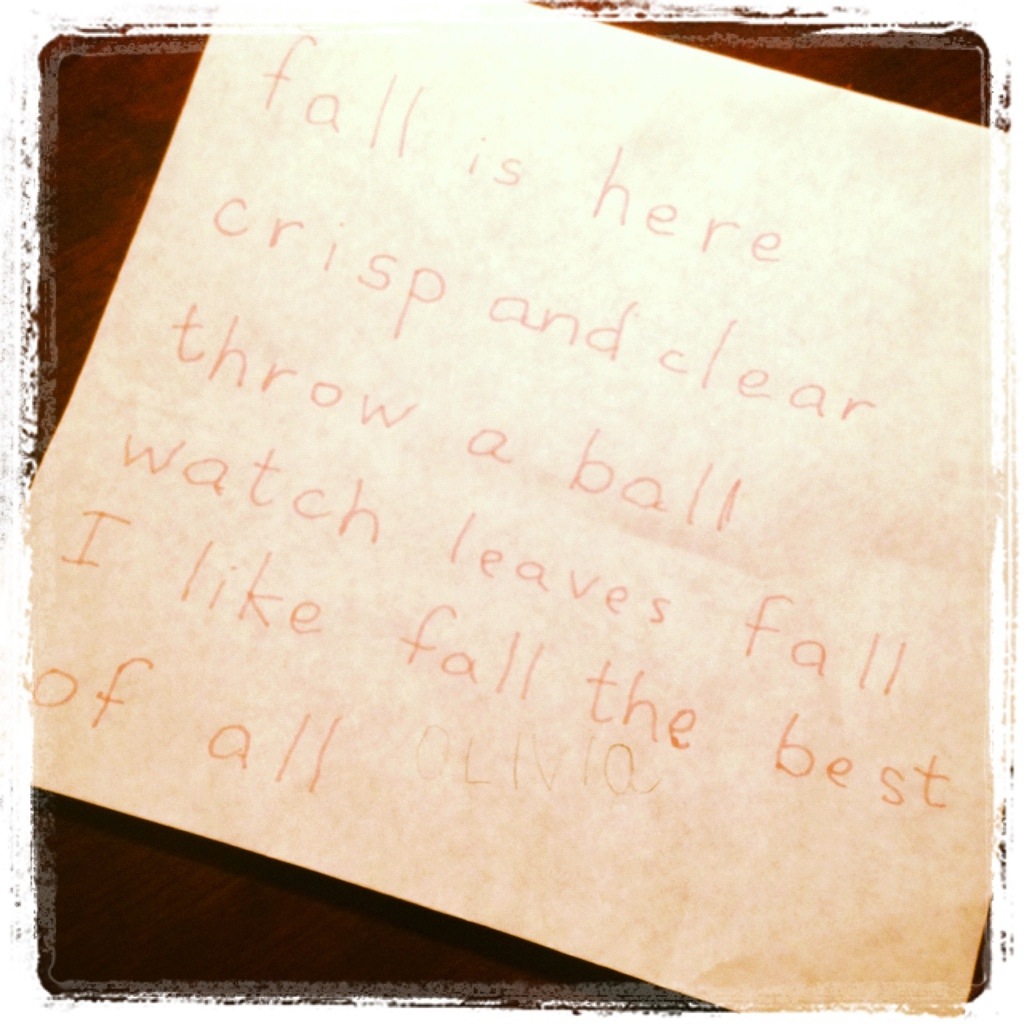 fall is here
crisp and clear
throw a ball
watch leaves fall
I like fall the best
of all OLIVIA